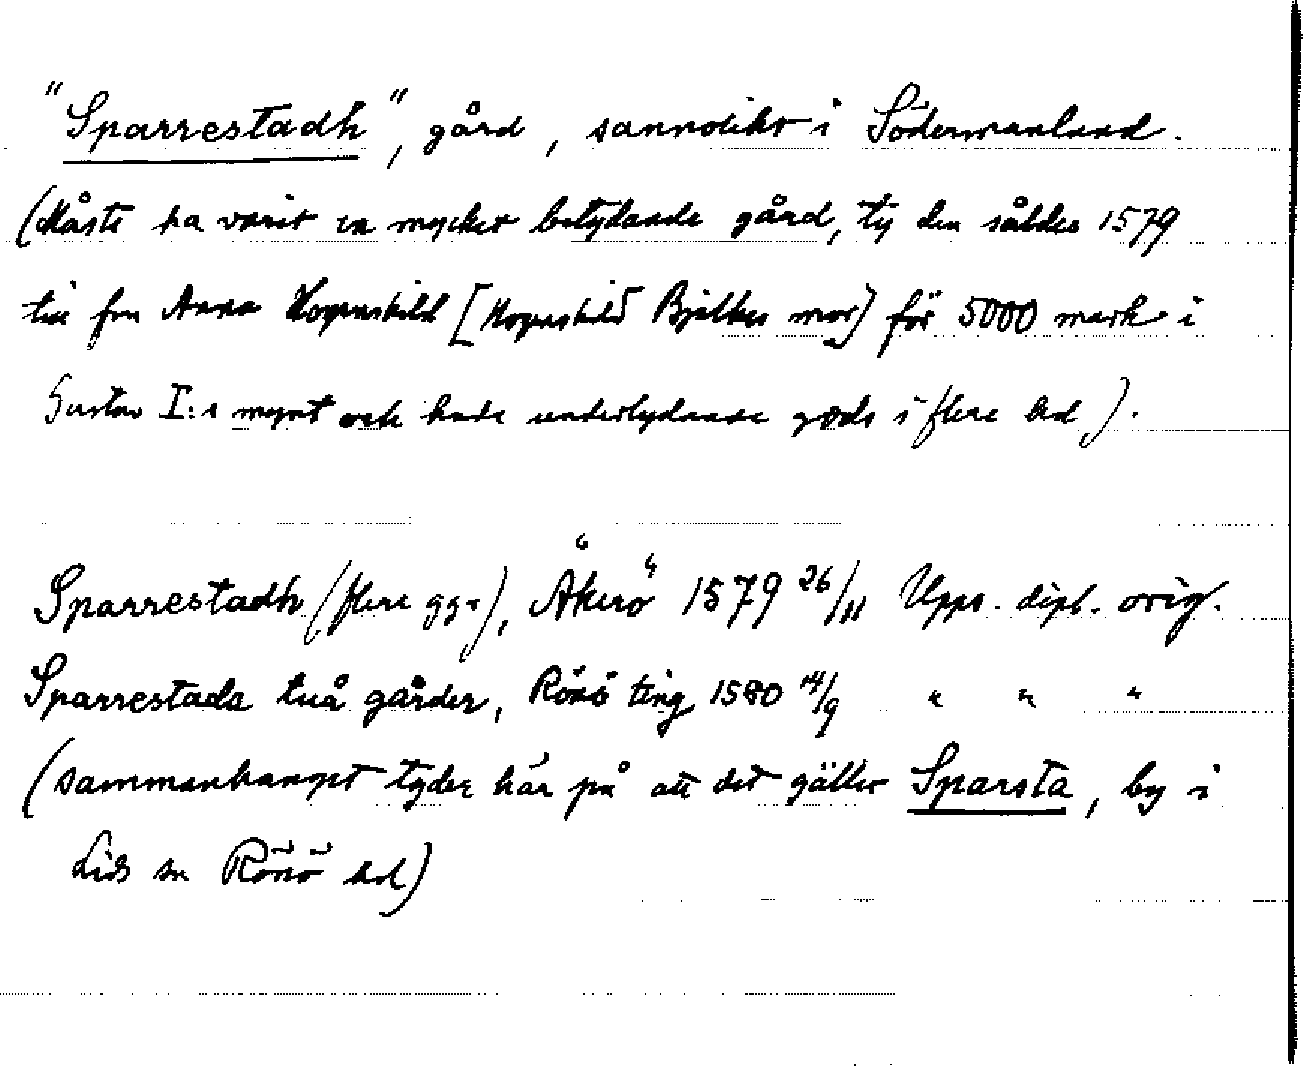 "Sparrestadh", gård, sannolikt i Södermanland.
(Måste ha varit en mycket betydande gård, ty den såldes 1579
till fru Anna Hogenskild [Hogenskild Bjelkes mor] för 5000 mark i
Gustav I:s mynt och hade underlydande gods i flere hd).
Sparrestadh (flere ggr), "Åkerö" 1579 26/11 Upps. dipl. orig.
Sparrestada tuå gårder, Rönö ting 1580 14/9 " " "
(sammanhanget tyder här på att det gäller Sparsta, by i
Lids sn Rönö hd)